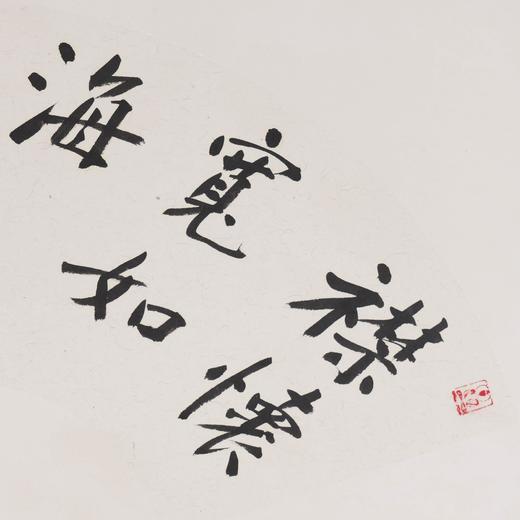 襟懷
寬如
海